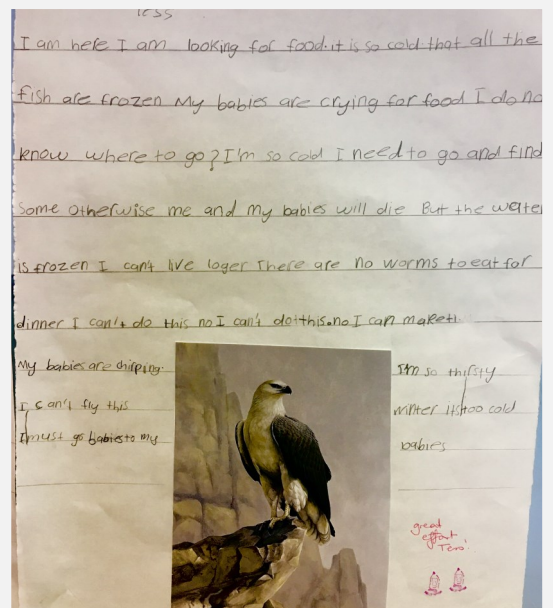 less
I am here I am looking for food. it is so cold that all the
fish are frozen My babies are crying for food I do no
know where to go? I'm so cold I need to go and find
some otherwise me and my babies will die But the water
is frozen I can't live loger There are no worms to eat for
dinner I can't do this no I can't do this. no I can make
My babies are chirping.
I can't fly this
I must go babies to my
I'm so thirsty
winter its too cold
babies
great
effort